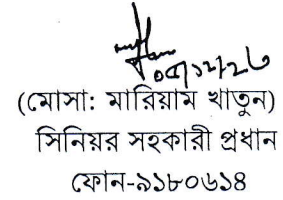 (মোসা: মারিয়াম খাতুন)
সিনিয়র সহকারী প্রধান
ফোন-৯১৮০৬১৪